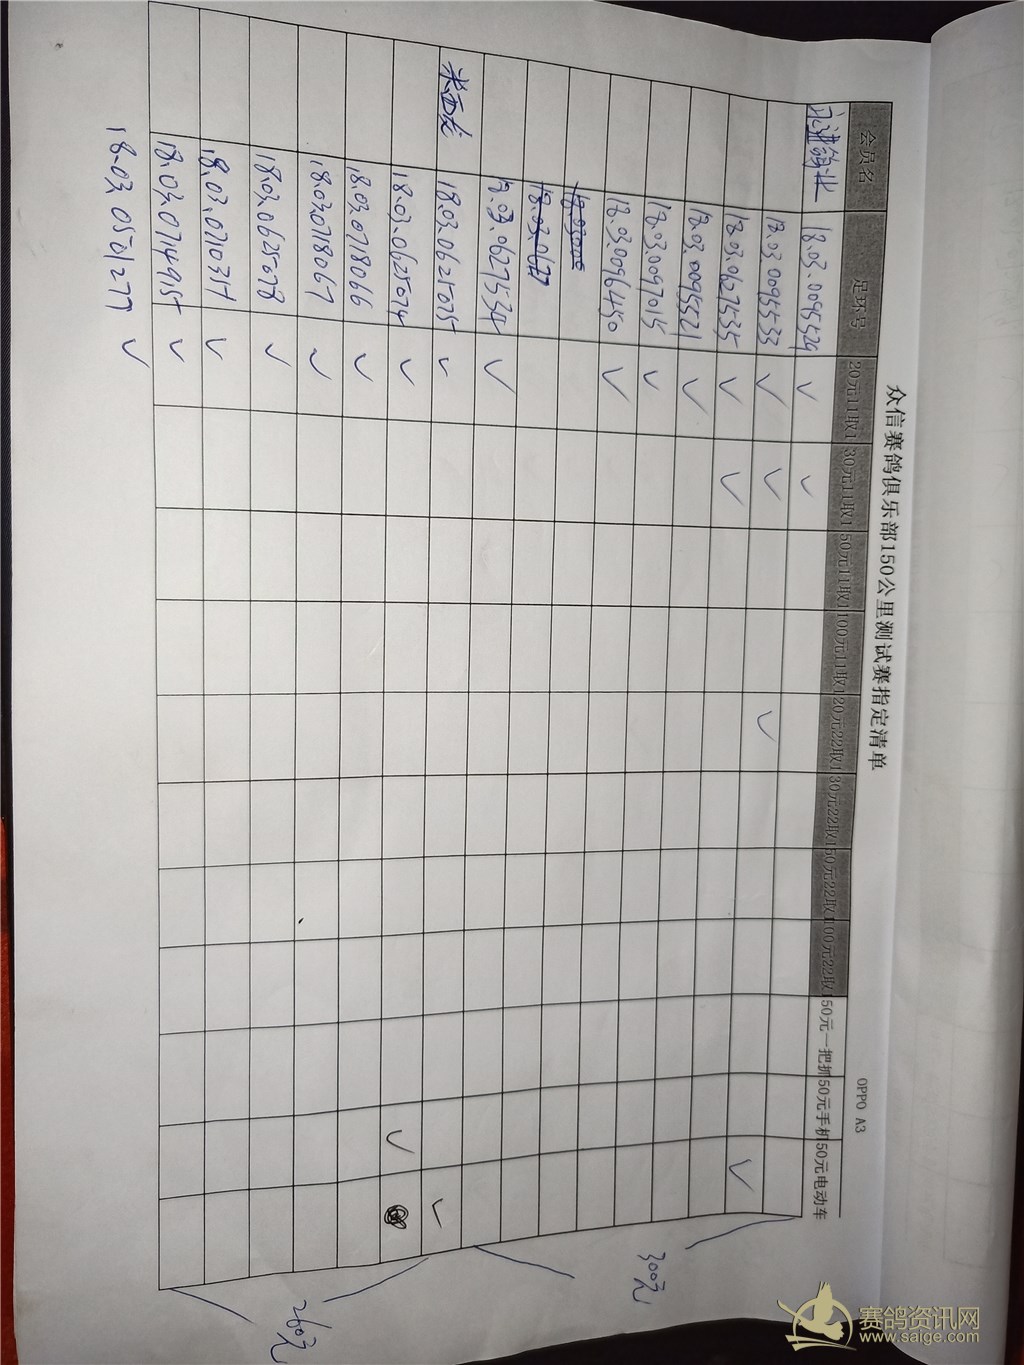 众信赛鸽俱乐部150公里测试赛指定清单
OPPO A3
会员名 足环号 20元11取1 30元11取1 50元11取1 100元11取1 20元22取1 30元22取1 50元22取1 100元22取1 50元一把抓 50元手机 50元电动车
永进鸽业 18.03.0095529 ✓ ✓
18.03.0095533 ✓ ✓ ✓
18.03.0627535 ✓ ✓ ✓
18.03.0095521 ✓
18.03.0097015 ✓
18.03.0096450 ✓
18.03.0627534 ✓
18.03.0625075 ✓ ✓
18.03.0625074 ✓ ✓
18.03.0718066 ✓
18.03.0718067 ✓
18.03.0625078 ✓
18.03.0710357 ✓
18.03.0714915 ✓
18.03.0501277 ✓
300元
260元
赛鸽资讯网
www.saige.com